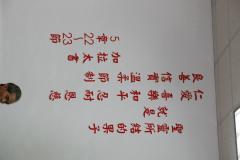 聖靈所結的果子
就是
仁愛喜樂和平忍耐恩慈
良善信實溫柔節制
加拉太書
5章22-23節